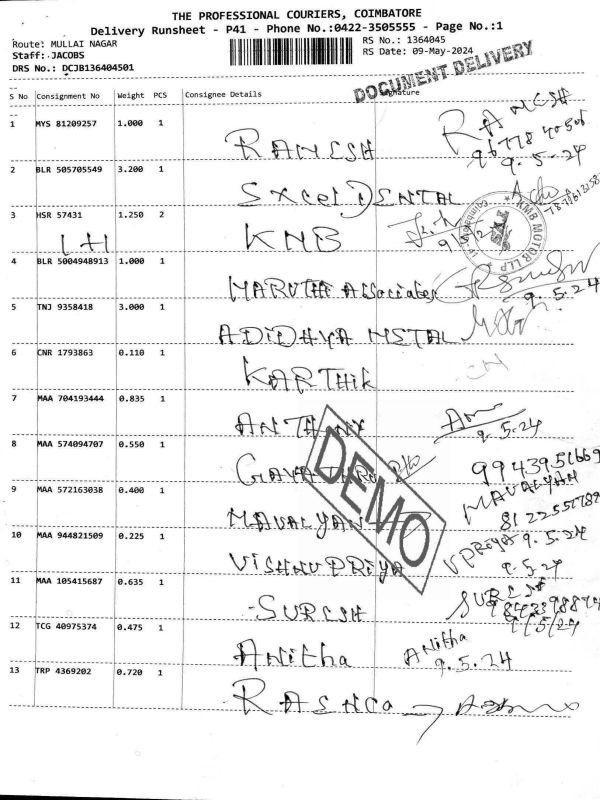 THE PROFESSIONAL COURIERS, COIMBATORE
Delivery Runsheet - P41 - Phone No.:0422-3505555 - Page No.:1
Route: MULLAI NAGAR RS No.: 1364045
Staff: JACOBS RS Date: 09-May-2024
DRS No.: DCJB136404501
DOCUMENT DELIVERY
S No Consignment No Weight PCS Consignee Details Signature
1 MYS 81209257 1.000 1 RAMESH RAMESH
9. 5. 24
2 BLR 505705549 3.200 1 SXCel DENTAL
3 HSR 57431 1.250 2 KNB
LHI
KMB MOTOR LLP
4 BLR 5004948913 1.000 1 MARUTHi Associates
9. 5. 24
5 TNJ 9358418 3.000 1 ADiDHYA METAL
6 CNR 1793863 0.110 1 KARTHiK
7 MAA 704193444 0.835 1 ANTHANY
9. 5. 24
8 MAA 574094707 0.550 1
9 MAA 572163038 0.400 1 MAVALYAN MAVALYAN
10 MAA 944821509 0.225 1 ViSHNUPRiYA VPRiya 9. 5. 24
9. 5. 24
11 MAA 105415687 0.635 1 SURESH SURESH
9/5/24
12 TCG 40975374 0.475 1 Anitha Anitha
9. 5. 24
13 TRP 4369202 0.720 1
DEMO